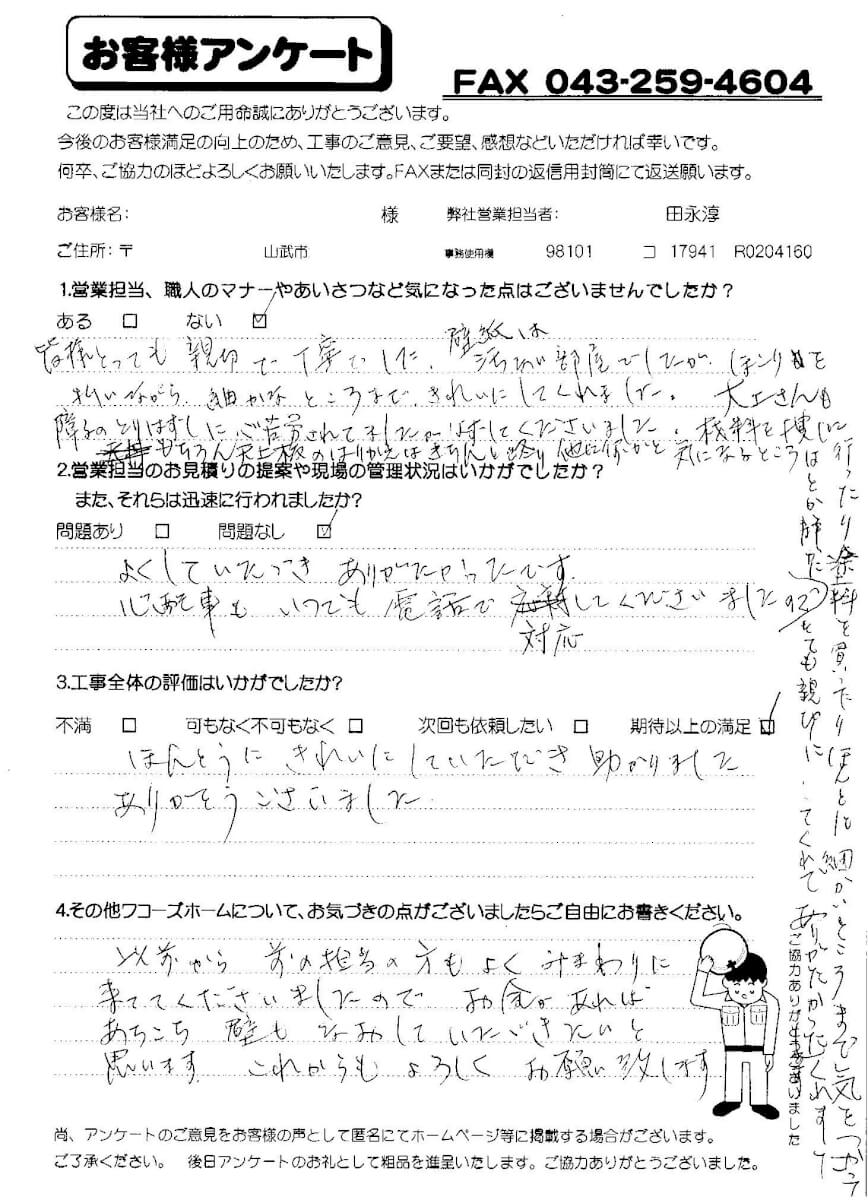 お客様アンケート
FAX 043-259-4604
この度は当社へのご用命誠にありがとうございます。
今後のお客様満足の向上のため、工事のご意見、ご要望、感想などいただければ幸いです。
何卒、ご協力のほどよろしくお願いいたします。FAXまたは同封の返信用封筒にて返送願います。
お客様名: 様 弊社営業担当者: 田永淳
ご住所:〒 山武市 事務使用欄 98101 コ 17941 R0204160
1.営業担当、職人のマナーやあいさつなど気になった点はございませんでしたか?
ある □ ない ☑
皆様とっても親切で丁寧でした。壁紙は 部屋でしたが ほこりを
払いながら、細かなところまで、きれいにしてくれました。大工さんも
障子のとりはずしに ご苦労されてましたが してくださいました。材料を捜しに
行ったり塗料を買ったりほんとに細かいところまで気をつかって
もちろん天上板のはりかえはきちんと 他に何かと気になるところ
はとか
とても親切に してくれて ありがたかった
2.営業担当のお見積りの提案や現場の管理状況はいかがでしたか?
また、それらは迅速に行われましたか?
問題あり □ 問題なし ☑
よくしていただき ありがたかったです。
いつでも電話で 対応してくださいましたので
3.工事全体の評価はいかがでしたか?
不満 □ 可もなく不可もなく □ 次回も依頼したい □ 期待以上の満足 ☑
ほんとうに きれいにしていただき 助かりました
ありがとうございました。
4.その他ワコーズホームについて、お気づきの点がございましたらご自由にお書きください。
以前から 前の担当の方も よく みまわりに
来ててくださいましたので お金があれば
あちこち 壁も なおしていただきたいと
思います これからも よろしく お願い致します
ご協力ありがとうございました
尚、アンケートのご意見をお客様の声として匿名にてホームページ等に掲載する場合がございます。
ご了承ください。 後日アンケートのお礼として粗品を進呈いたします。ご協力ありがとうございました。